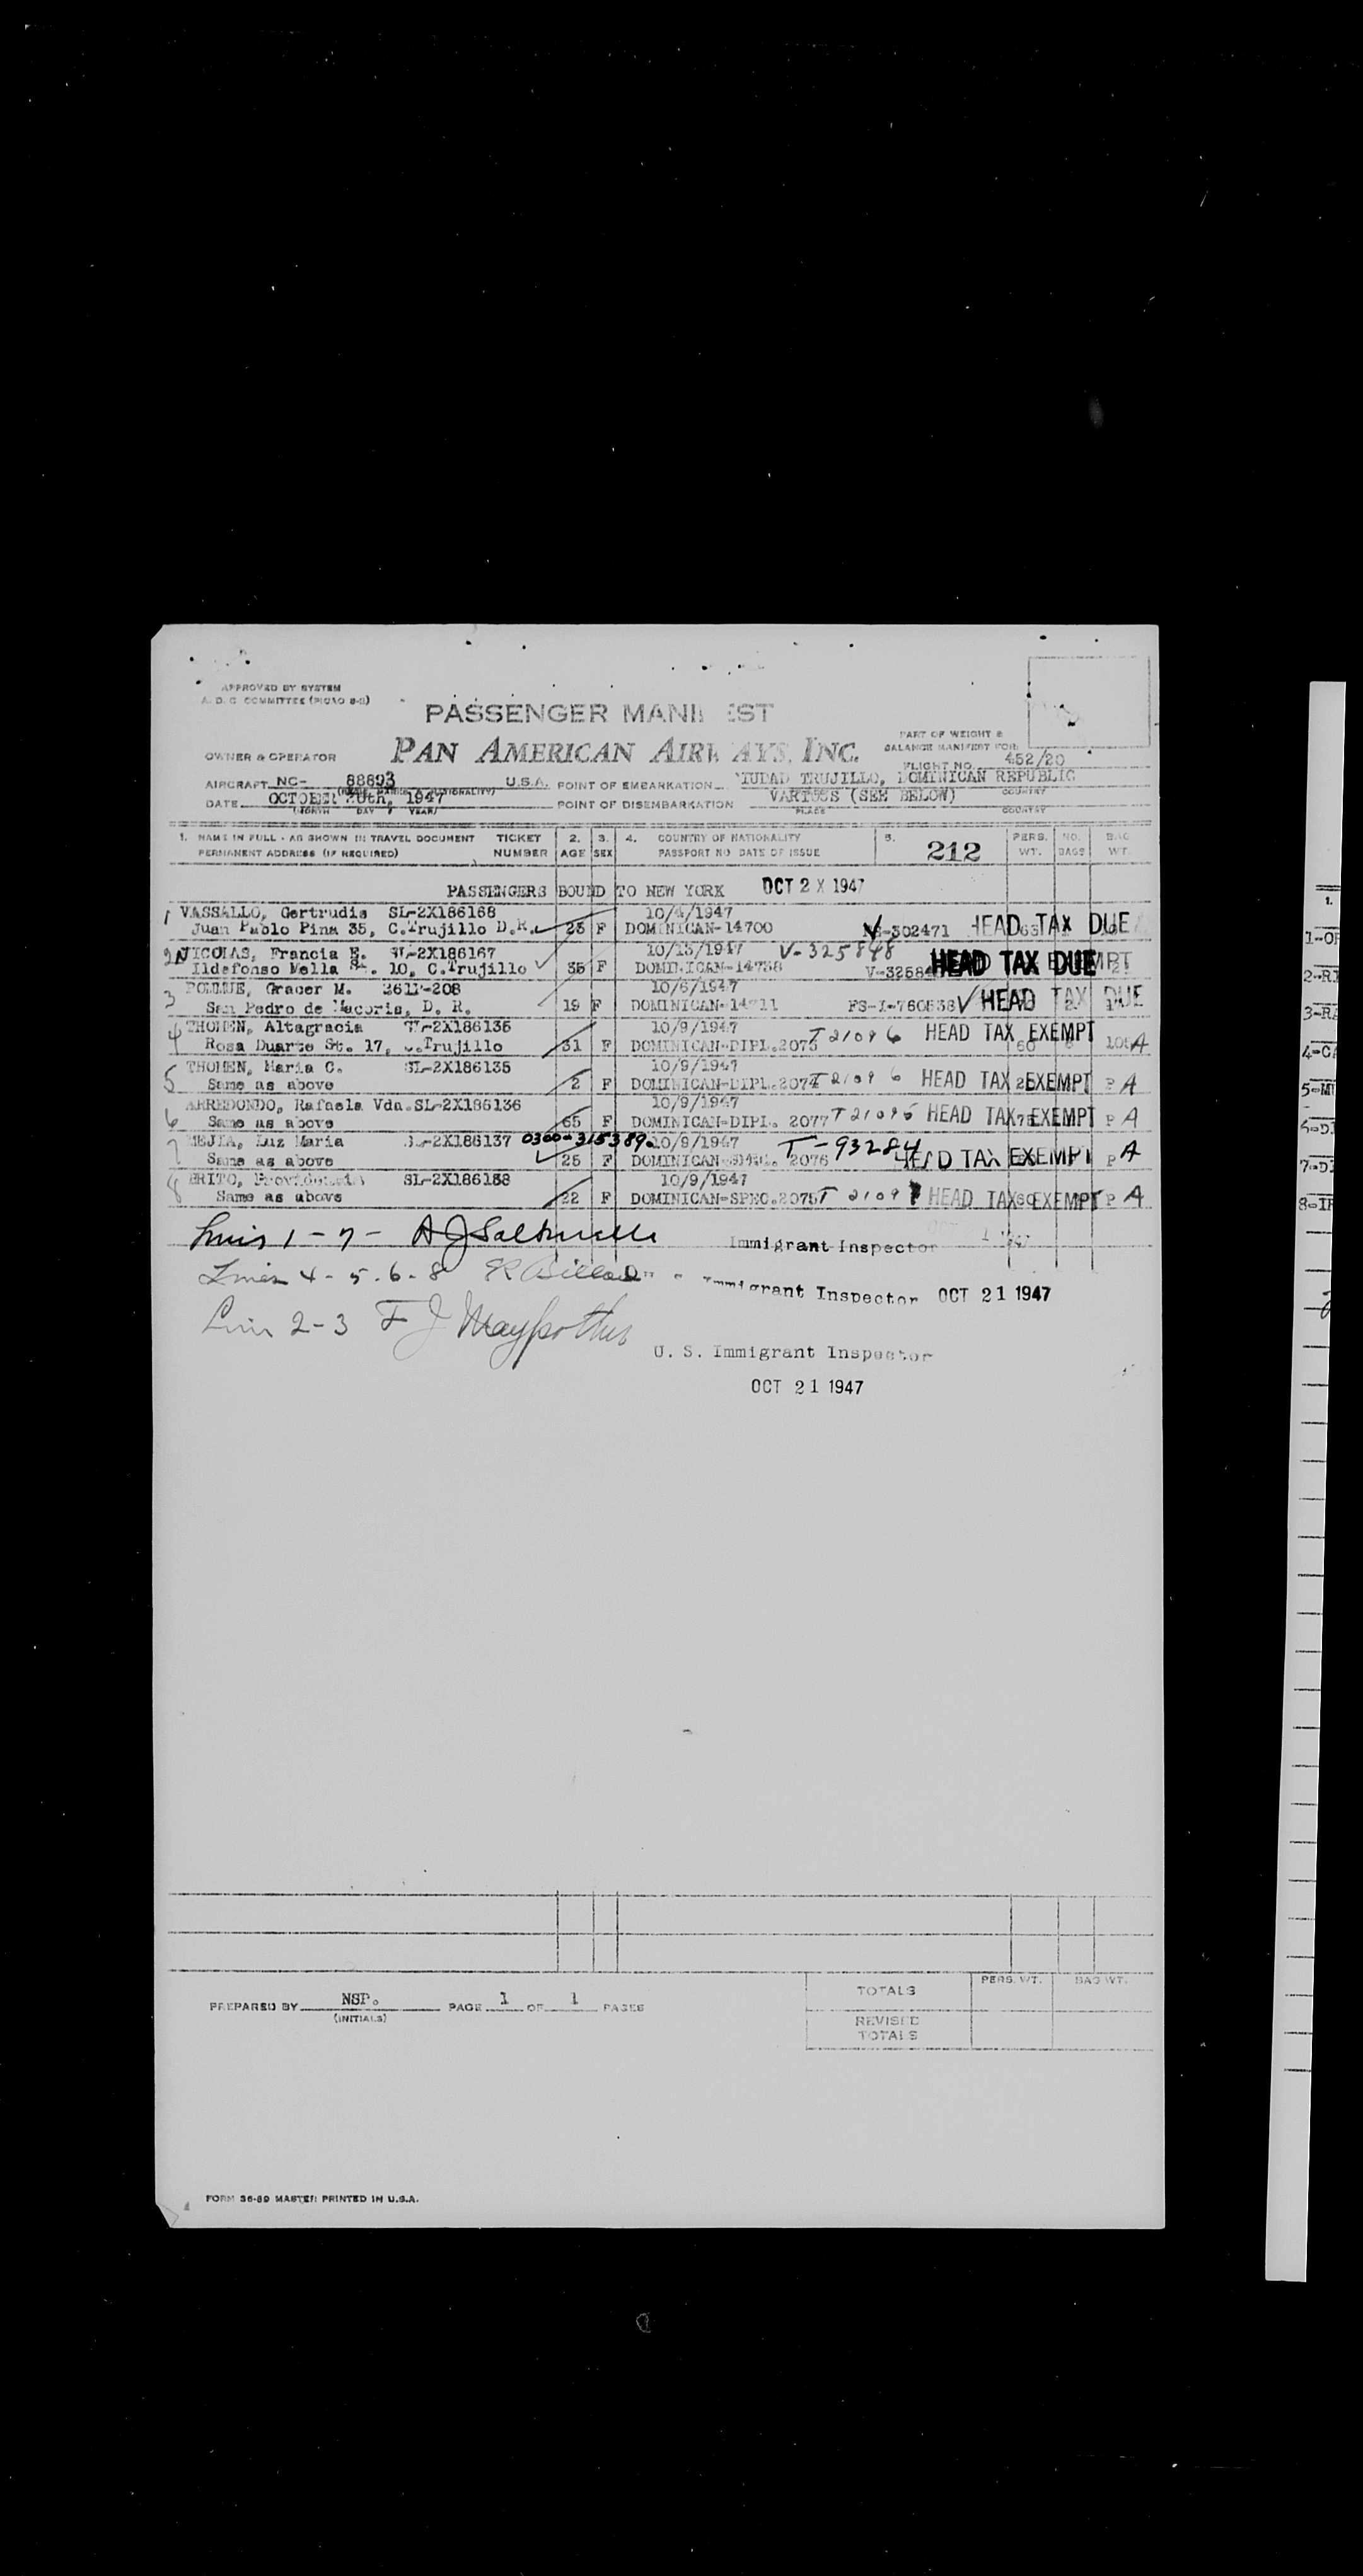 APPROVED BY SYSTEM
A. D. C. COMMITTEE
PASSENGER MANI EST
PAN AMERICAN AIRWAYS, INC.
PART OF WEIGHT &
BALANCE MANIFEST FOR
OWNER & OPERATOR
FLIGHT NO. 452/20
AIRCRAFT NC- 88893 U.S.A. POINT OF EMBARKATION CIUDAD TRUJILLO, DOMINICAN REPUBLIC
DATE OCTOBER 20th, 1947 POINT OF DISEMBARKATION VARIOUS (SEE BELOW)
(MONTH DAY YEAR) PLACE COUNTRY
1. NAME IN FULL - AS SHOWN IN TRAVEL DOCUMENT TICKET 2. 3. 4. COUNTRY OF NATIONALITY 5. 212 PERS. NO. BAG
PERMANENT ADDRESS (IF REQUIRED) NUMBER AGE SEX PASSPORT NO DATE OF ISSUE WT. BAGS WT.
PASSENGERS BOUND TO NEW YORK OCT 2 X 1947
1 VASSALLO, Gertrudis SL-2X186168 10/4/1947
Juan Pablo Pina 35, C.Trujillo D.R. F DOMINICAN-14700 302471 HEAD TAX DUE
2 NICOLAS, Francia E. SL-2X186167 10/13/1947 V-325848
Ildefonso Mella St. 10, C.Trujillo 35 F DOMINICAN-14738 HEAD TAX DUE
3 Gracer M. 10/6/1947
San Pedro de Macoris, D. R. 19 F DOMINICAN-14711 FS-I-760538 HEAD TAX DUE
4 THOMEN, Altagracia SL-2X186135 10/9/1947
Rosa Duarte St. 17, C.Trujillo 31 F DOMINICAN-DIPL.2073 T 21096 HEAD TAX EXEMPT A
5 THOMEN, Maria C. SL-2X186135 10/9/1947
Same as above 2 F DOMINICAN-DIPL.2074 T 21096 HEAD TAX EXEMPT P A
6 ARREDONDO, Rafaela Vda. SL-2X186136 10/9/1947
Same as above 65 F DOMINICAN-DIPL. 2077 T 21095 HEAD TAX EXEMPT P A
7 MEJIA, Luz Maria SL-2X186137 0300-315389 10/9/1947 T-93284
Same as above 25 F DOMINICAN 2076 HEAD TAX EXEMPT P A
8 BRITO, Providencia SL-2X186138 10/9/1947
Same as above 22 F DOMINICAN-SPEC.2075 T 2109 HEAD TAX EXEMPT P A
Lines 1-7- Immigrant Inspector
Lines 4-5-6-8 Immigrant Inspector OCT 21 1947
Lines 2-3 F J
U. S. Immigrant Inspector
OCT 21 1947
PREPARED BY NSP. PAGE 1 OF 1 PAGES
(INITIALS)
TOTALS PERS. WT. BAG WT.
REVISED
TOTALS
FORM 36-89 MASTER PRINTED IN U.S.A.
1.